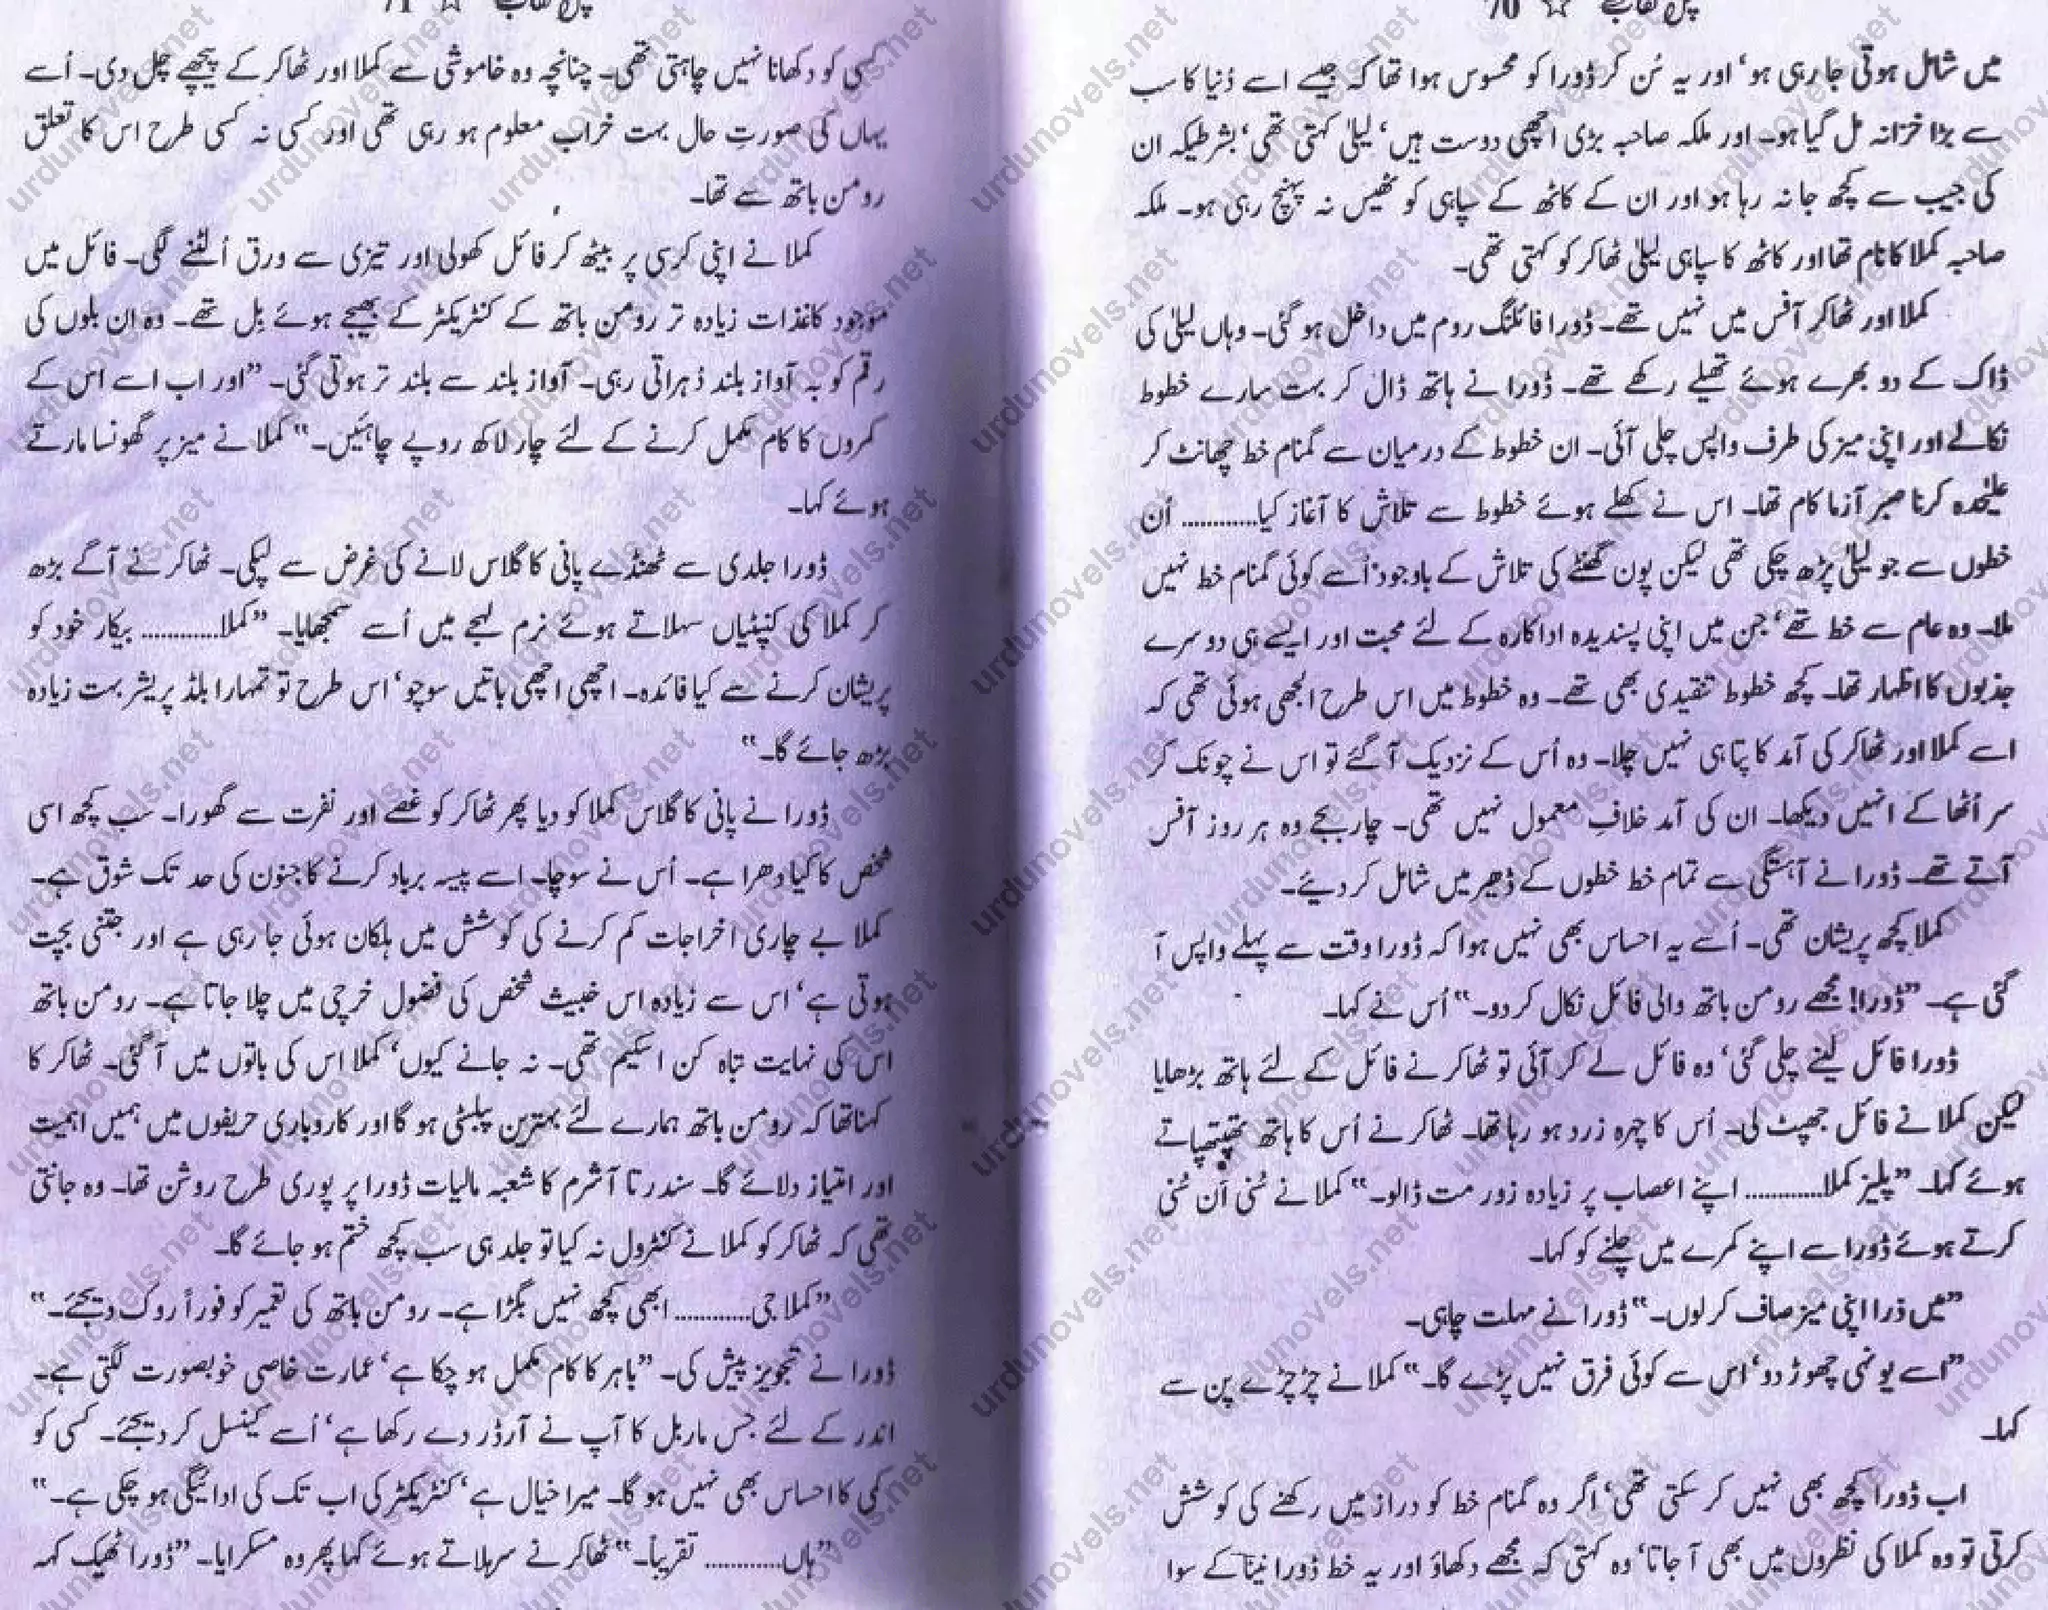 70 ☆ پس نقاب
میں شامل ہوتی جا رہی ہو‘ اور یہ سُن کر ڈورا کو محسوس ہوا تھا کہ جیسے اسے دُنیا کا سب
سے بڑا خزانہ مل گیا ہو۔ اور ملکہ صاحبہ بڑی اچھی دوست ہیں‘ لیلیٰ کہتی تھی‘ بشرطیکہ ان
کی جیب سے کچھ جا نہ رہا ہو اور ان کے کاٹھ کے سپاہی کو ٹھیس نہ پہنچ رہی ہو۔ ملکہ
صاحبہ کملا کا نام تھا اور کاٹھ کا سپاہی لیلیٰ ٹھاکر کو کہتی تھی۔
کملا اور ٹھاکر آفس میں نہیں تھے۔ ڈورا فائلنگ روم میں داخل ہو گئی۔ وہاں لیلیٰ کی
ڈاک کے دو بھرے ہوئے تھیلے رکھے تھے۔ ڈورا نے ہاتھ ڈال کر بہت سارے خطوط
نکالے اور اپنی میز کی طرف واپس چلی آئی۔ ان خطوط کے درمیان سے گمنام خط چھانٹ کر
علیٰحدہ کرنا صبر آزما کام تھا۔ اس نے کھلے ہوئے خطوط سے تلاش کا آغاز کیا............ اُن
خطوں سے جو لیلیٰ پڑھ چکی تھی لیکن پون گھنٹے کی تلاش کے باوجود اُسے کوئی گمنام خط نہیں
ملا۔ وہ عام سے خط تھے‘ جن میں اپنی پسندیدہ اداکارہ کے لئے محبت اور ایسے ہی دوسرے
جذبوں کا اظہار تھا۔ کچھ خطوط تنقیدی بھی تھے۔ وہ خطوط میں اس طرح الجھی ہوئی تھی کہ
اسے کملا اور ٹھاکر کی آمد کا پتا ہی نہیں چلا۔ وہ اُس کے نزدیک آ گئے تو اس نے چونک کر
سر اُٹھا کے انہیں دیکھا۔ ان کی آمد خلافِ معمول نہیں تھی۔ چار بجے وہ ہر روز آفس
آتے تھے۔ ڈورا نے آہستگی سے تمام خط خطوں کے ڈھیر میں شامل کر دیئے۔
کملا کچھ پریشان تھی۔ اُسے یہ احساس بھی نہیں ہوا کہ ڈورا وقت سے پہلے واپس آ
گئی ہے۔ ”ڈورا! مجھے رومن باتھ والی فائل نکال کر دو۔“ اُس نے کہا۔
ڈورا فائل لینے چلی گئی‘ وہ فائل لے کر آئی تو ٹھاکر نے فائل کے لئے ہاتھ بڑھایا
لیکن کملا نے فائل جھپٹ لی۔ اُس کا چہرہ زرد ہو رہا تھا۔ ٹھاکر نے اُس کا ہاتھ تھپتھپاتے
ہوئے کہا۔ ”پلیز کملا............ اپنے اعصاب پر زیادہ زور مت ڈالو۔“ کملا نے سُنی اَن سُنی
کرتے ہوئے ڈورا سے اپنے کمرے میں چلنے کو کہا۔
”میں ذرا اپنی میز صاف کر لوں۔“ ڈورا نے مہلت چاہی۔
”اسے یونہی چھوڑ دو‘ اس سے کوئی فرق نہیں پڑے گا۔“ کملا نے چڑچڑے پن سے
کہا۔
اب ڈورا کچھ بھی نہیں کر سکتی تھی‘ اگر وہ گمنام خط کو دراز میں رکھنے کی کوشش
کرتی تو وہ کملا کی نظروں میں بھی آ جاتا‘ وہ کہتی کہ مجھے دکھاؤ اور یہ خط ڈورا نینا کے سوا
71 ☆ پس نقاب
کسی کو دکھانا نہیں چاہتی تھی۔ چنانچہ وہ خاموشی سے کملا اور ٹھاکر کے پیچھے چل دی۔ اُسے
یہاں کی صورتِ حال بہت خراب معلوم ہو رہی تھی اور کسی نہ کسی طرح اس کا تعلق
رومن باتھ سے تھا۔
کملا نے اپنی کرسی پر بیٹھ کر فائل کھولی اور تیزی سے ورق اُلٹنے لگی۔ فائل میں
موجود کاغذات زیادہ تر رومن باتھ کے کنٹریکٹر کے بھیجے ہوئے بل تھے۔ وہ ان بلوں کی
رقم کو بہ آواز بلند دُہراتی رہی۔ آواز بلند سے بلند تر ہوتی گئی۔ ”اور اب اسے اس کے
کمروں کا کام مکمل کرنے کے لئے چار لاکھ روپے چاہئیں۔“ کملا نے میز پر گھونسا مارتے
ہوئے کہا۔
ڈورا جلدی سے ٹھنڈے پانی کا گلاس لانے کی غرض سے لپکی۔ ٹھاکر نے آگے بڑھ
کر کملا کی کنپٹیاں سہلاتے ہوئے نرم لہجے میں اُسے سمجھایا۔ ”کملا............ بیکار خود کو
پریشان کرنے سے کیا فائدہ۔ اچھی اچھی باتیں سوچو‘ اس طرح تو تمہارا بلڈ پریشر بہت زیادہ
بڑھ جائے گا۔“
ڈورا نے پانی کا گلاس کملا کو دیا پھر ٹھاکر کو غصے اور نفرت سے گھورا۔ سب کچھ اسی
شخص کا کیا دھرا ہے۔ اُس نے سوچا۔ اسے پیسہ برباد کرنے کا جنون کی حد تک شوق ہے۔
کملا بے چاری اخراجات کم کرنے کی کوشش میں ہلکان ہوئی جا رہی ہے اور جتنی بچت
ہوتی ہے‘ اس سے زیادہ اس خبیث شخص کی فضول خرچی میں چلا جاتا ہے۔ رومن باتھ
اس کی نہایت تباہ کن اسکیم تھی۔ نہ جانے کیوں‘ کملا اس کی باتوں میں آ گئی۔ ٹھاکر کا
کہنا تھا کہ رومن باتھ ہمارے لئے بہترین پبلسٹی ہو گا اور کاروباری حریفوں میں ہمیں اہمیت
اور امتیاز دلائے گا۔ سندرتا آشرم کا شعبہ مالیات ڈورا پر پوری طرح روشن تھا۔ وہ جانتی
تھی کہ ٹھاکر کو کملا نے کنٹرول نہ کیا تو جلد ہی سب کچھ ختم ہو جائے گا۔
”کملا جی............ ابھی کچھ نہیں بگڑا ہے۔ رومن باتھ کی تعمیر کو فوراً روک دیجئے۔“
ڈورا نے تجویز پیش کی۔ ”باہر کا کام مکمل ہو چکا ہے‘ عمارت خاصی خوبصورت لگتی ہے۔
اندر کے لئے جس ماربل کا آپ نے آرڈر دے رکھا ہے‘ اُسے کینسل کر دیجئے۔ کسی کو
کمی کا احساس بھی نہیں ہو گا۔ میرا خیال ہے‘ کنٹریکٹر کی اب تک کی ادائیگی ہو چکی ہے۔“
”ہاں............ تقریباً۔“ ٹھاکر نے سر ہلاتے ہوئے کہا پھر وہ مسکرایا۔ ”ڈورا ٹھیک کہہ
urdunovels.net